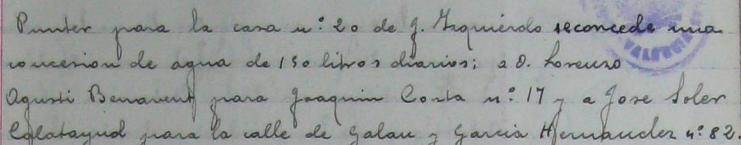 Punter para la casa n.º 20 de J. Izquierdo se concede una
concesion de agua de 150 litros diarios; a D. Lorenzo
Agusti Benavent para Joaquin Costa n.º 17 y a Jose Soler
Calatayud para la calle de Galan y Garcia Hernandez n.º 82.
VALENCIA